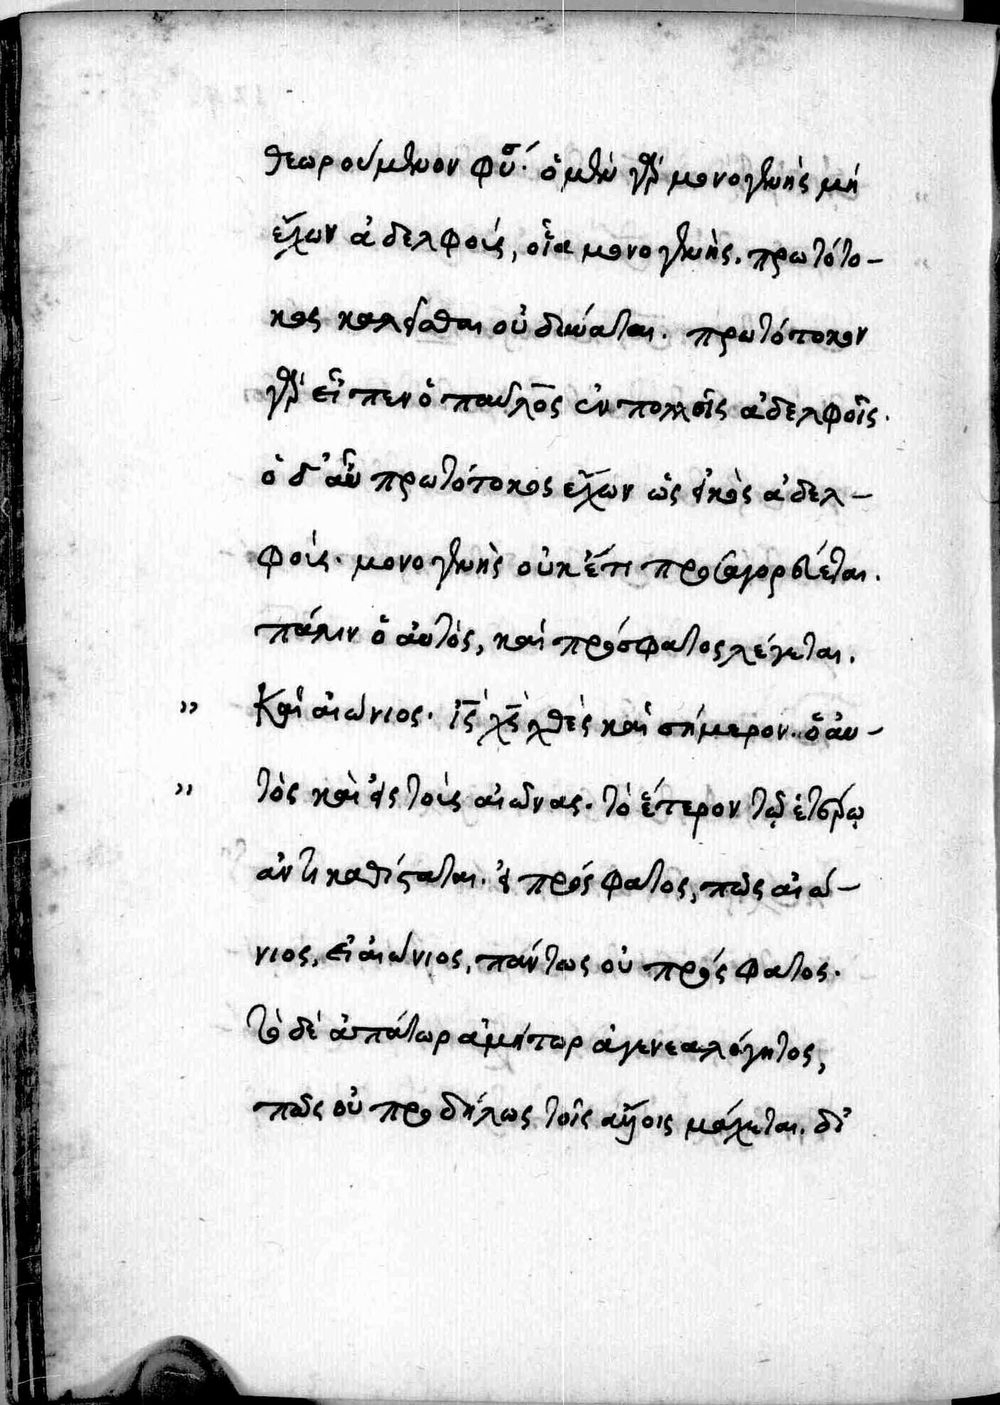 θεωρούμενον φῦσ· ὁ μὲν γὰρ μονογενὴς μὴ
ἔχων ἀδελφούς, οἷα μονογενὴς. πρωτότο-
κος καλεῖσθαι οὐ δύναται. πρωτότοκον
γὰρ εἶπεν ὁ παῦλος ἐν πολλοῖς ἀδελφοῖς.
ὁ δ' αὖ πρωτότοκος ἔχων ὡς εἰκὸς ἀδελ-
φούς. μονογενὴς οὐκ ἔτι προσαγορεύεται.
πάλιν ὁ αὐτὸς, καὶ πρόσφατος λέγεται.
" Καὶ αἰώνιος. ἰς χς χθὲς καὶ σήμερον. ὁ αὐ-
" τὸς καὶ εἰς τοὺς αἰῶνας. τὸ ἕτερον τῷ ἑτέρῳ
ἀντικαθίσταται. εἰ πρόσφατος, πῶς αἰώ-
νιος, εἰ αἰώνιος, πάντως οὐ πρόσφατος.
τὸ δὲ ἀπάτωρ ἀμήτωρ ἀγενεαλόγητος,
πῶς οὐ προδήλως τοῖς μάχεται. δι'